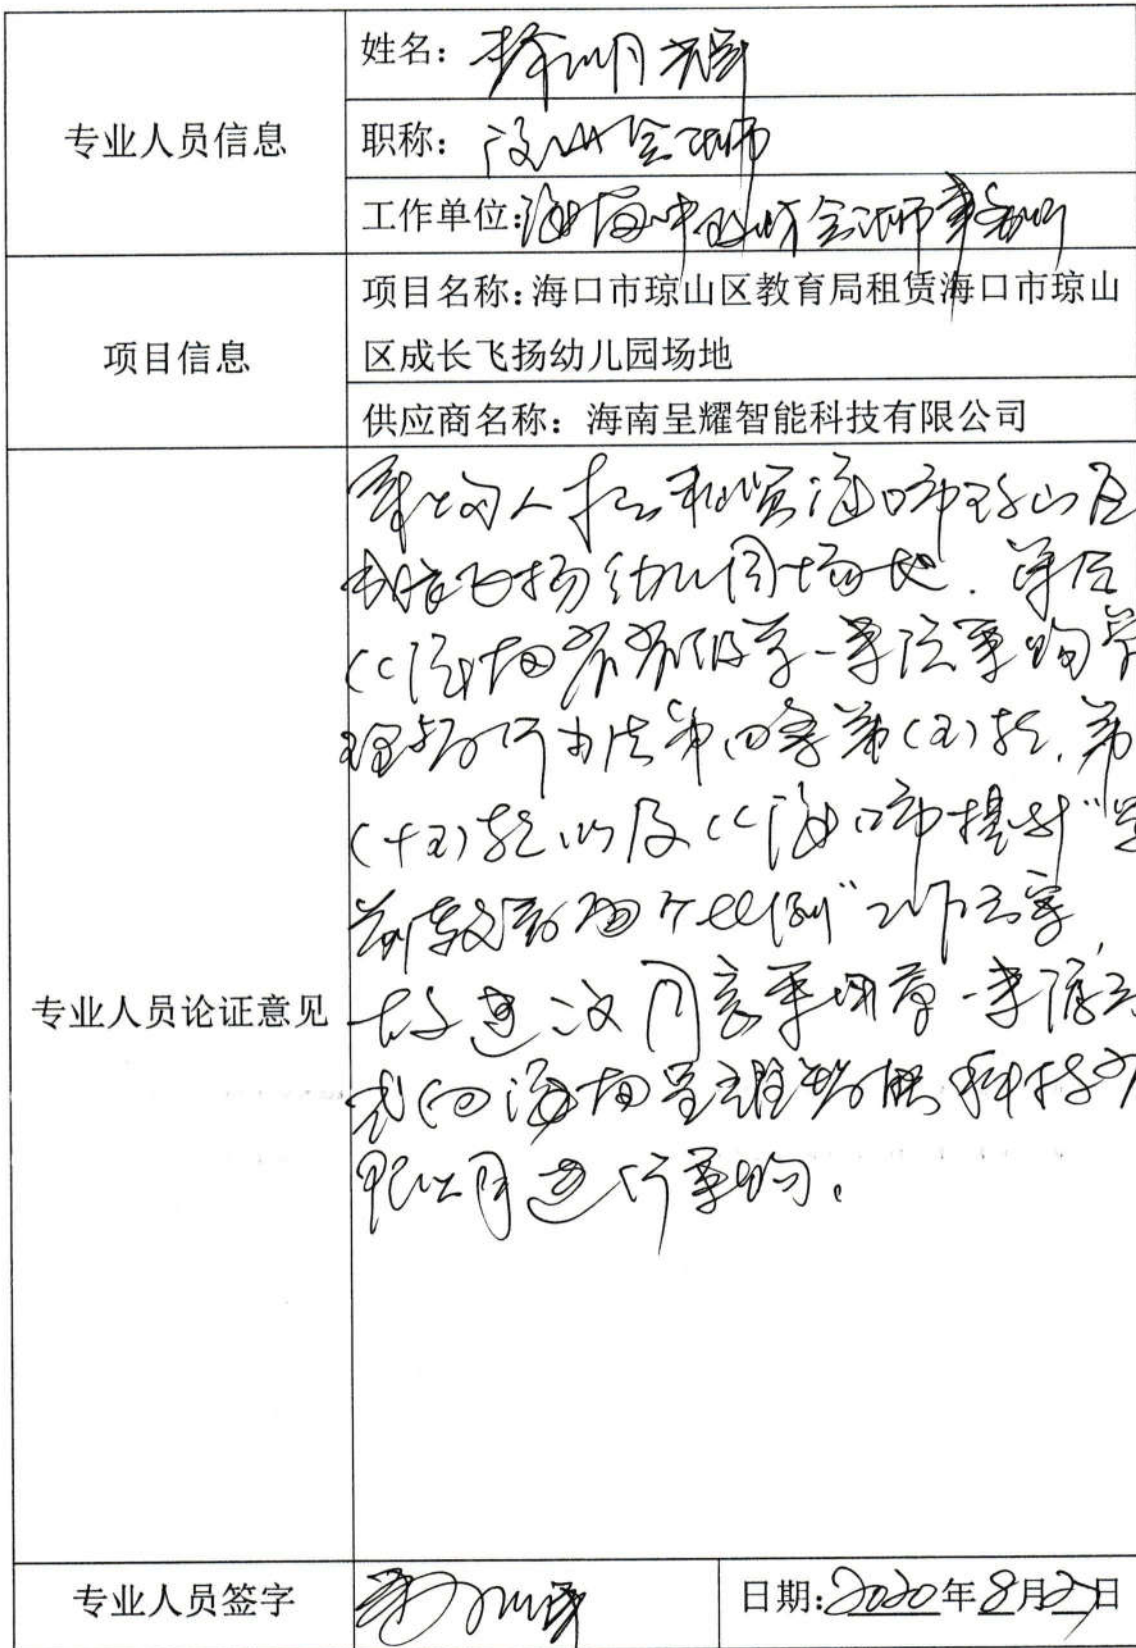 专业人员信息
姓名：
职称：注册会计师
工作单位：海南中 会计师事务所
项目信息
项目名称：海口市琼山区教育局租赁海口市琼山
区成长飞扬幼儿园场地
供应商名称：海南呈耀智能科技有限公司
专业人员论证意见
采购人拟租赁海口市琼山区
成长飞扬幼儿园场地．符合
《海南省省级单一来源采购管
理暂行办法第四条第（五）款，第
（十五）款以及《海口市提升“学
前教育两个比例”工作方案，
故建议同意采用单一来源方
式向海南呈耀智能科技有
限公司进行采购。
专业人员签字
日期：2020年8月27日